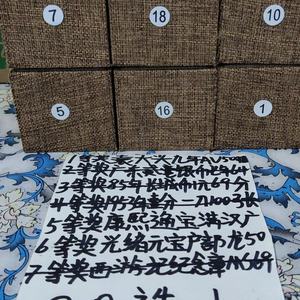 7 18 10
5 16 1
1等奖袁大头九年AU50
2等奖广东
3等奖85年长城币1元69分
4等奖1953年壹分二刀100张
5等奖康熙通宝满汉广
6等奖光绪元宝户部龙50
7等奖西游记纪念章